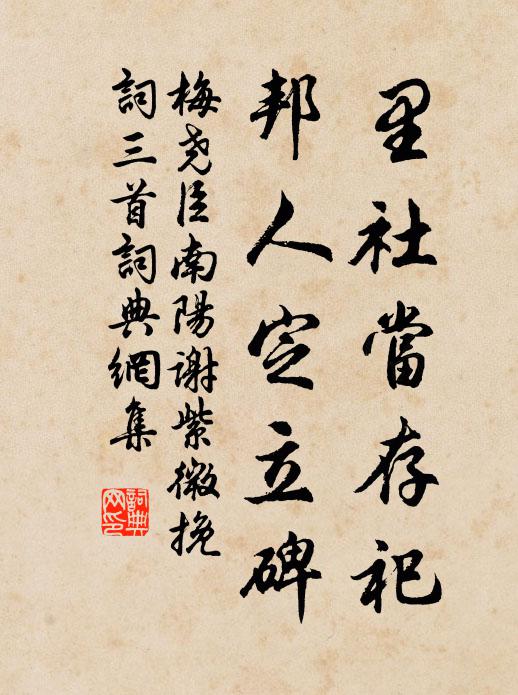 里社當存祀
邦人定立碑
梅堯臣南陽謝紫微挽
詞三首詞典網集
詞典
网印